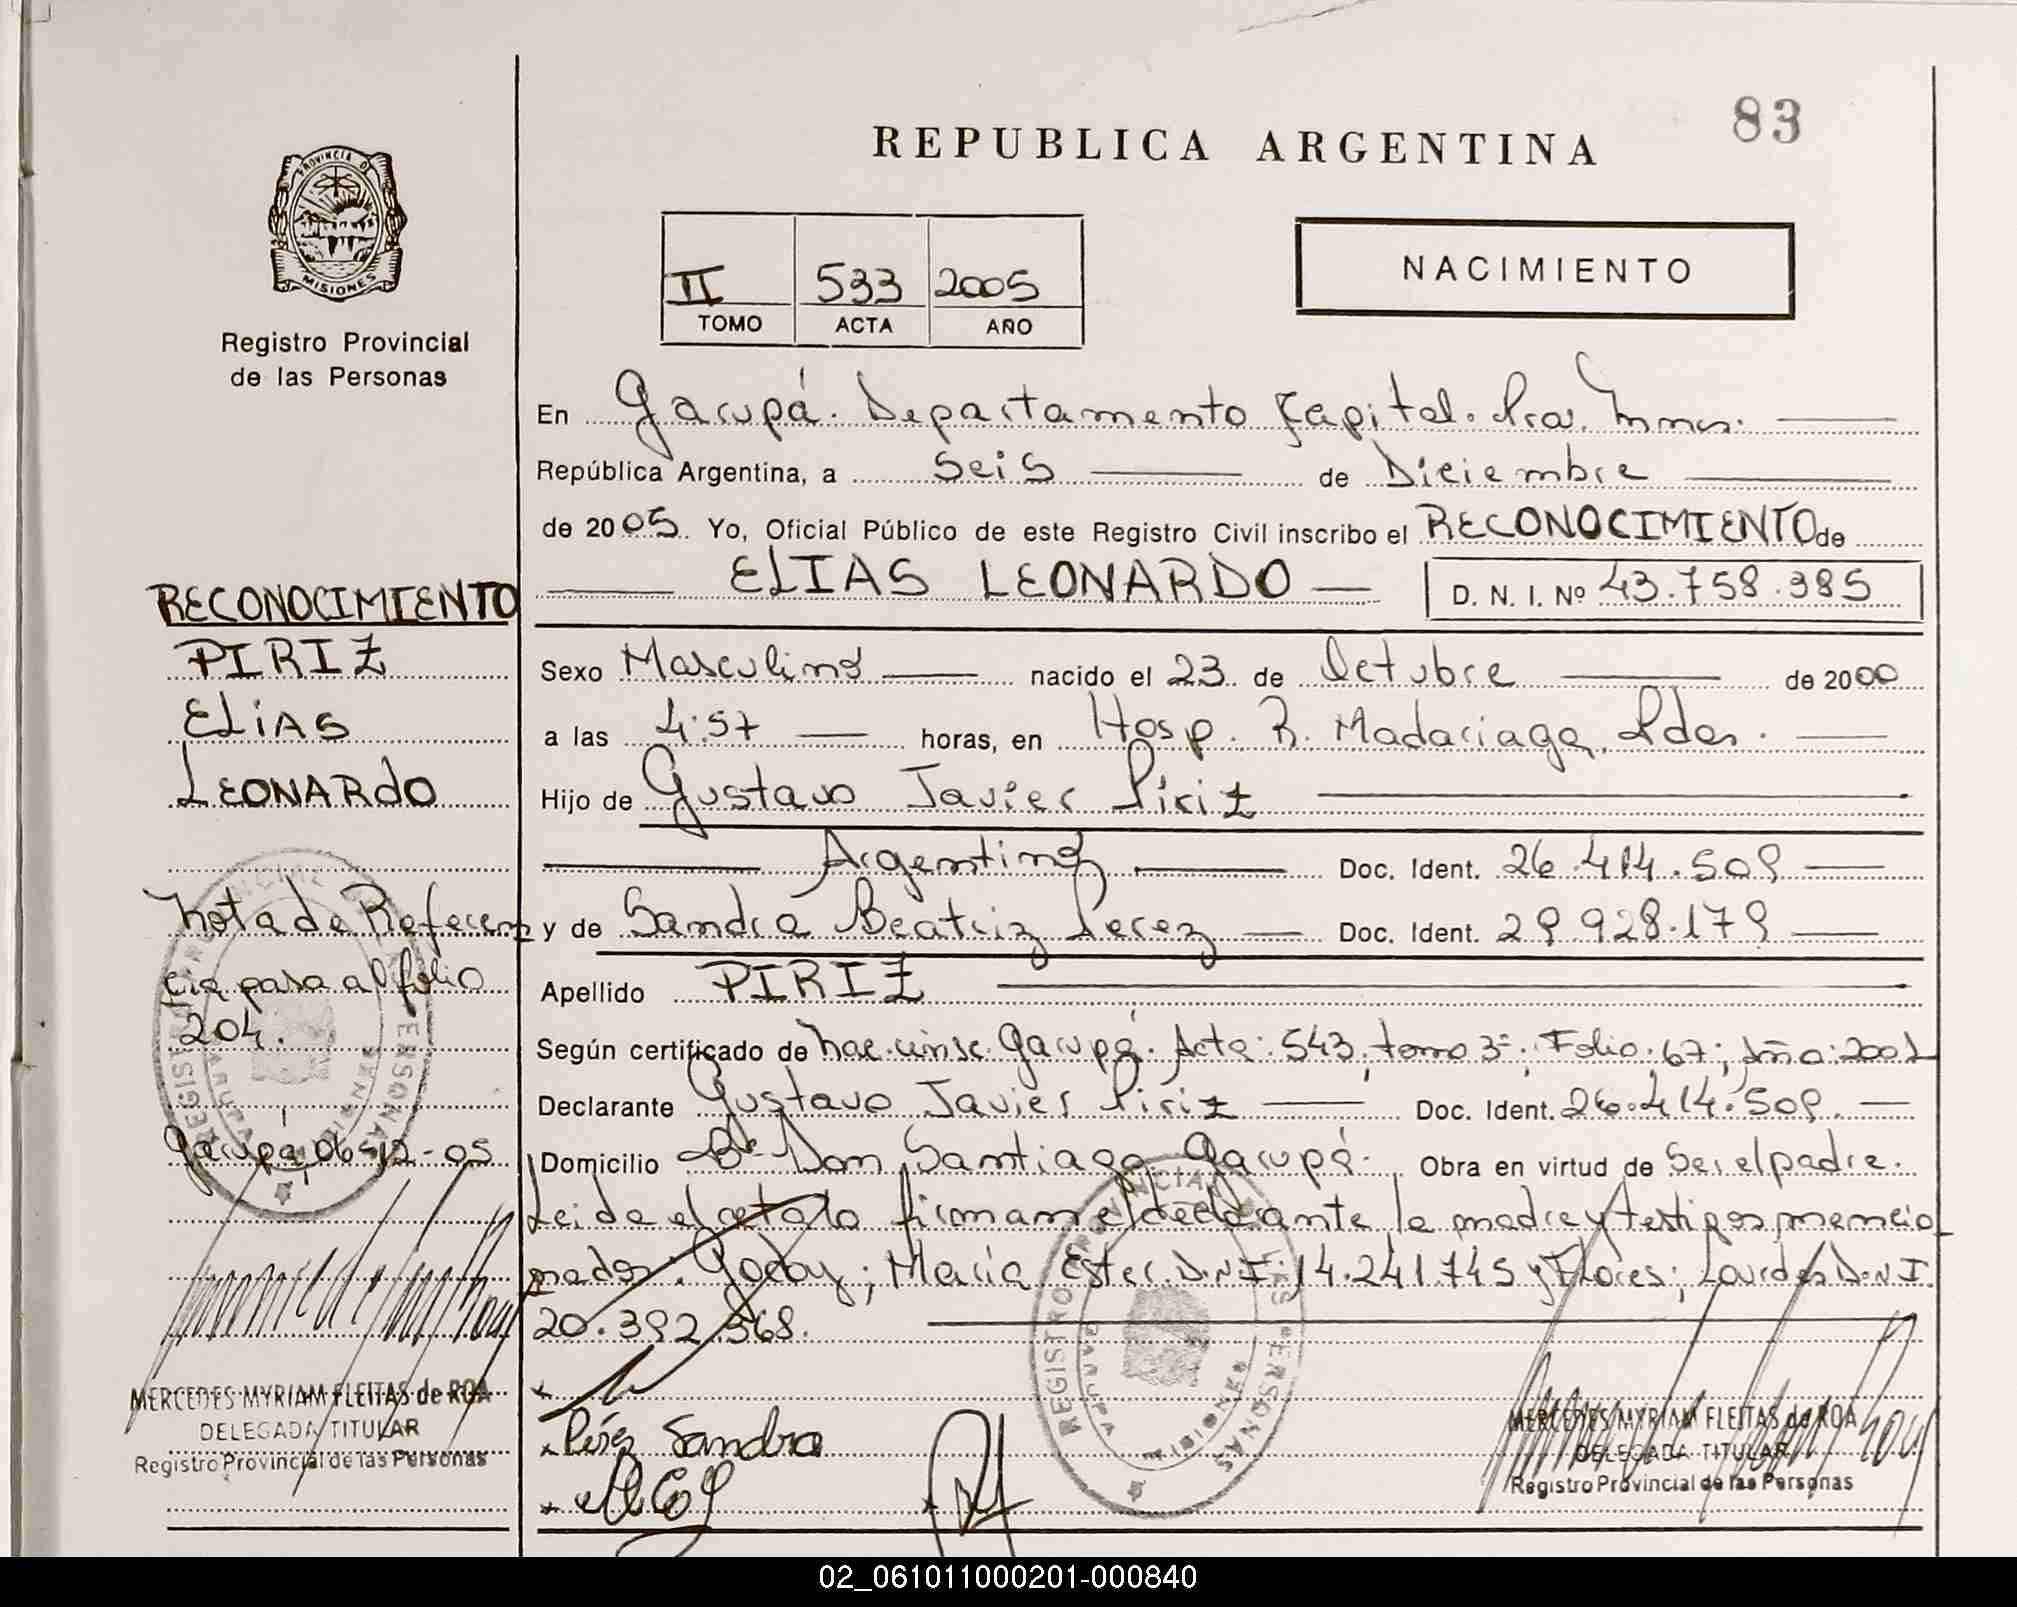 83
REPUBLICA ARGENTINA
PROVINCIA DE
MISIONES
Registro Provincial
de las Personas
II 533 2005
TOMO ACTA AÑO
NACIMIENTO
En Garupá. Departamento Capital. Pcia. Mnes.
República Argentina, a Seis de Diciembre
de 2005. Yo, Oficial Público de este Registro Civil inscribo el RECONOCIMIENTO de
ELIAS LEONARDO D. N. I. Nº 43.758.385
Sexo Masculino nacido el 23 de Octubre de 2000
a las 4:57 horas, en Hosp. R. Madariaga. Pdas.
Hijo de Gustavo Javier Piriz
Argentino Doc. Ident. 26.414.509
y de Sandra Beatriz Perez Doc. Ident. 29.928.179
Apellido PIRIZ
Según certificado de Nac. Garupá. Acta: 543, tomo 3º; Folio: 67; Año: 2001
Declarante Gustavo Javier Piriz Doc. Ident. 26.414.509.
Domicilio Bº Don Santiago. Garupá. Obra en virtud de Ser el padre.
Leida el acta la firman el declarante la madre y testigos mencio
nados. Godoy; María Ester. D.N.I: 14.241.745 y Flores; Lourdes D.N.I
20.392.368.
Pérez Sandra
MERCEDES MYRIAM FLEITAS de ROA
DELEGADA TITULAR
Registro Provincial de las Personas
RECONOCIMIENTO
PIRIZ
ELIAS
LEONARDO
Nota de Referen
cia pasa al folio
204.
Garupá, 06-12-05
MERCEDES MYRIAM FLEITAS de ROA
DELEGADA TITULAR
Registro Provincial de las Personas
02_061011000201-000840